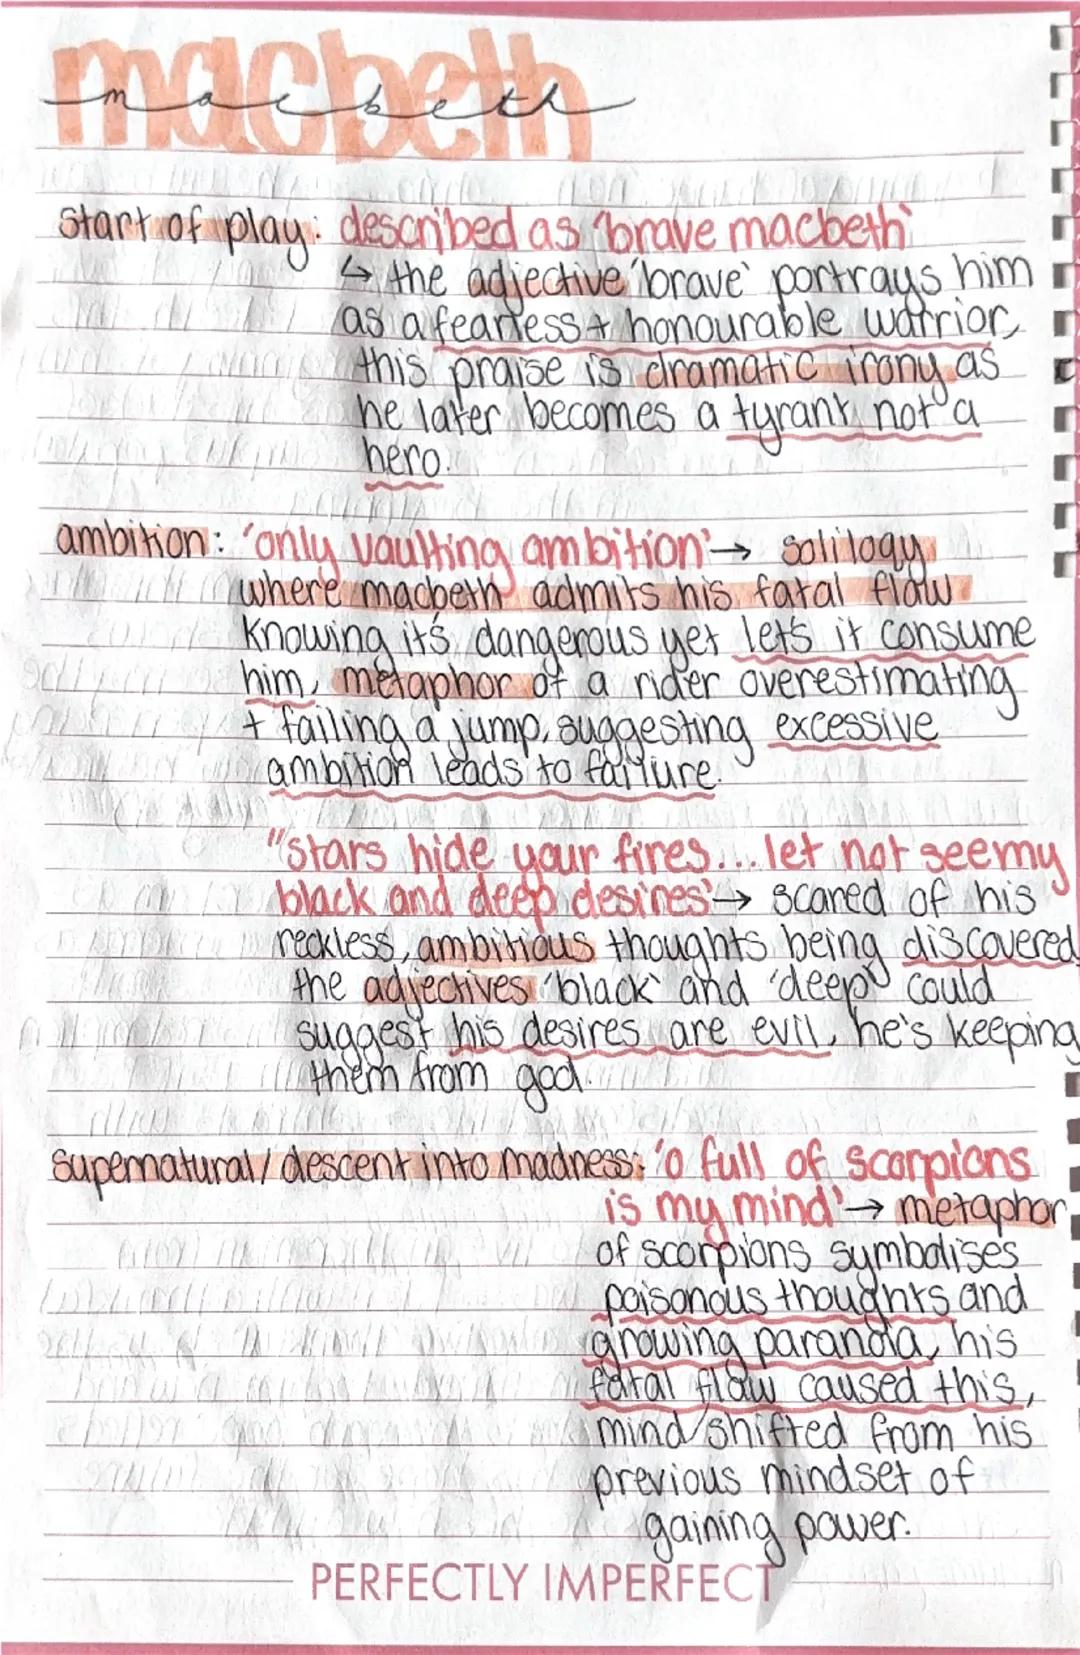 macbeth
macbeth
start of play: described as 'brave macbeth'
↳ the adjective 'brave' portrays him
as a fearless + honourable warrior,
this praise is dramatic irony as
he later becomes a tyrant not a
hero.
ambition: 'only vaulting ambition' → soliloquy
where macbeth admits his fatal flaw
knowing it's dangerous yet let's it consume
him, metaphor of a rider overestimating
+ failing a jump, suggesting excessive
ambition leads to failure.
"stars hide your fires... let not see my
black and deep desires' → scared of his
reckless, ambitious thoughts being discovered
the adjectives 'black' and 'deep' could
suggest his desires are evil, he's keeping
them from god.
supernatural/descent into madness: 'o full of scorpions
is my mind' → metaphor
of scorpions symbolises
poisonous thoughts and
growing paranoia, his
fatal flaw caused this,
mind shifted from his
previous mindset of
gaining power.
PERFECTLY IMPERFECT